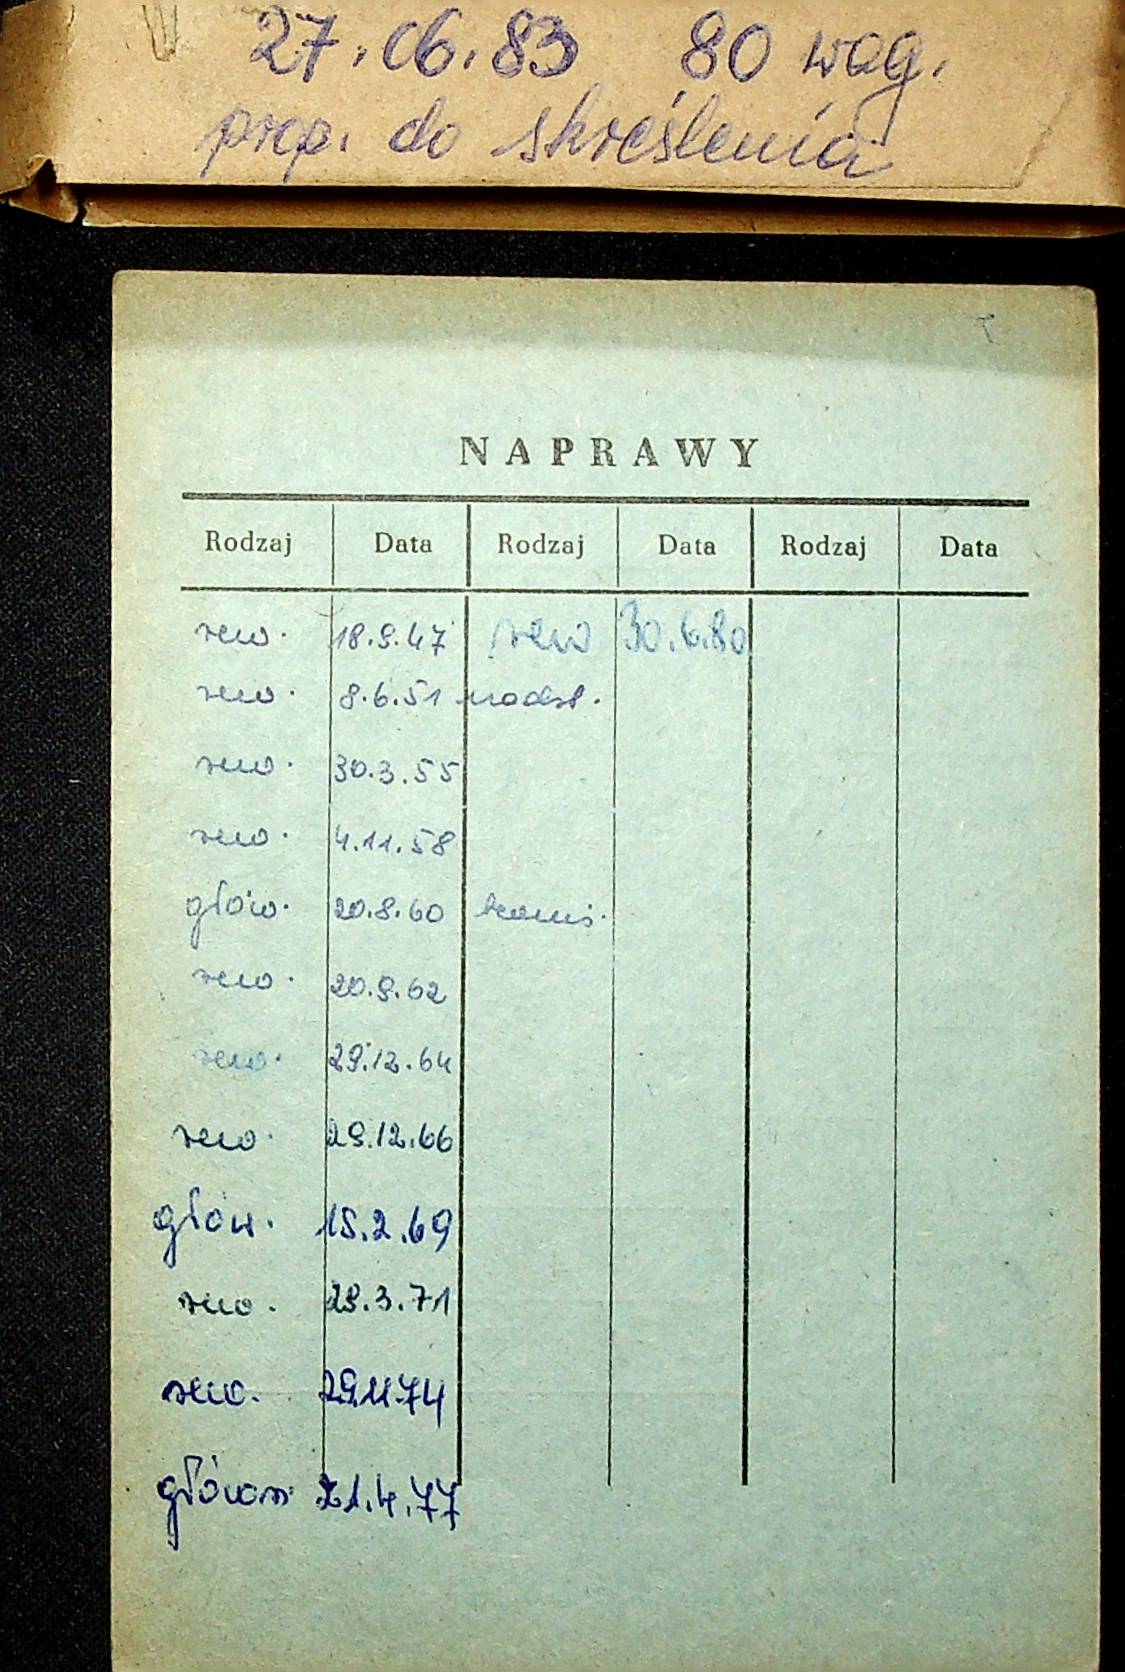 27.06.83 80 wag.
prop. do skreślenia
NAPRAWY
Rodzaj Data Rodzaj Data Rodzaj Data
rew. 18.9.47 rew 30.6.80
rew. 8.6.51 nadst.
rew. 30.3.55
rew. 4.11.58
głów. 20.8.60
rew. 20.9.62
rew. 29.12.64
rew. 29.12.66
głów. 15.2.69
rew. 29.3.71
rew. 29.11.74
główn. 21.4.77